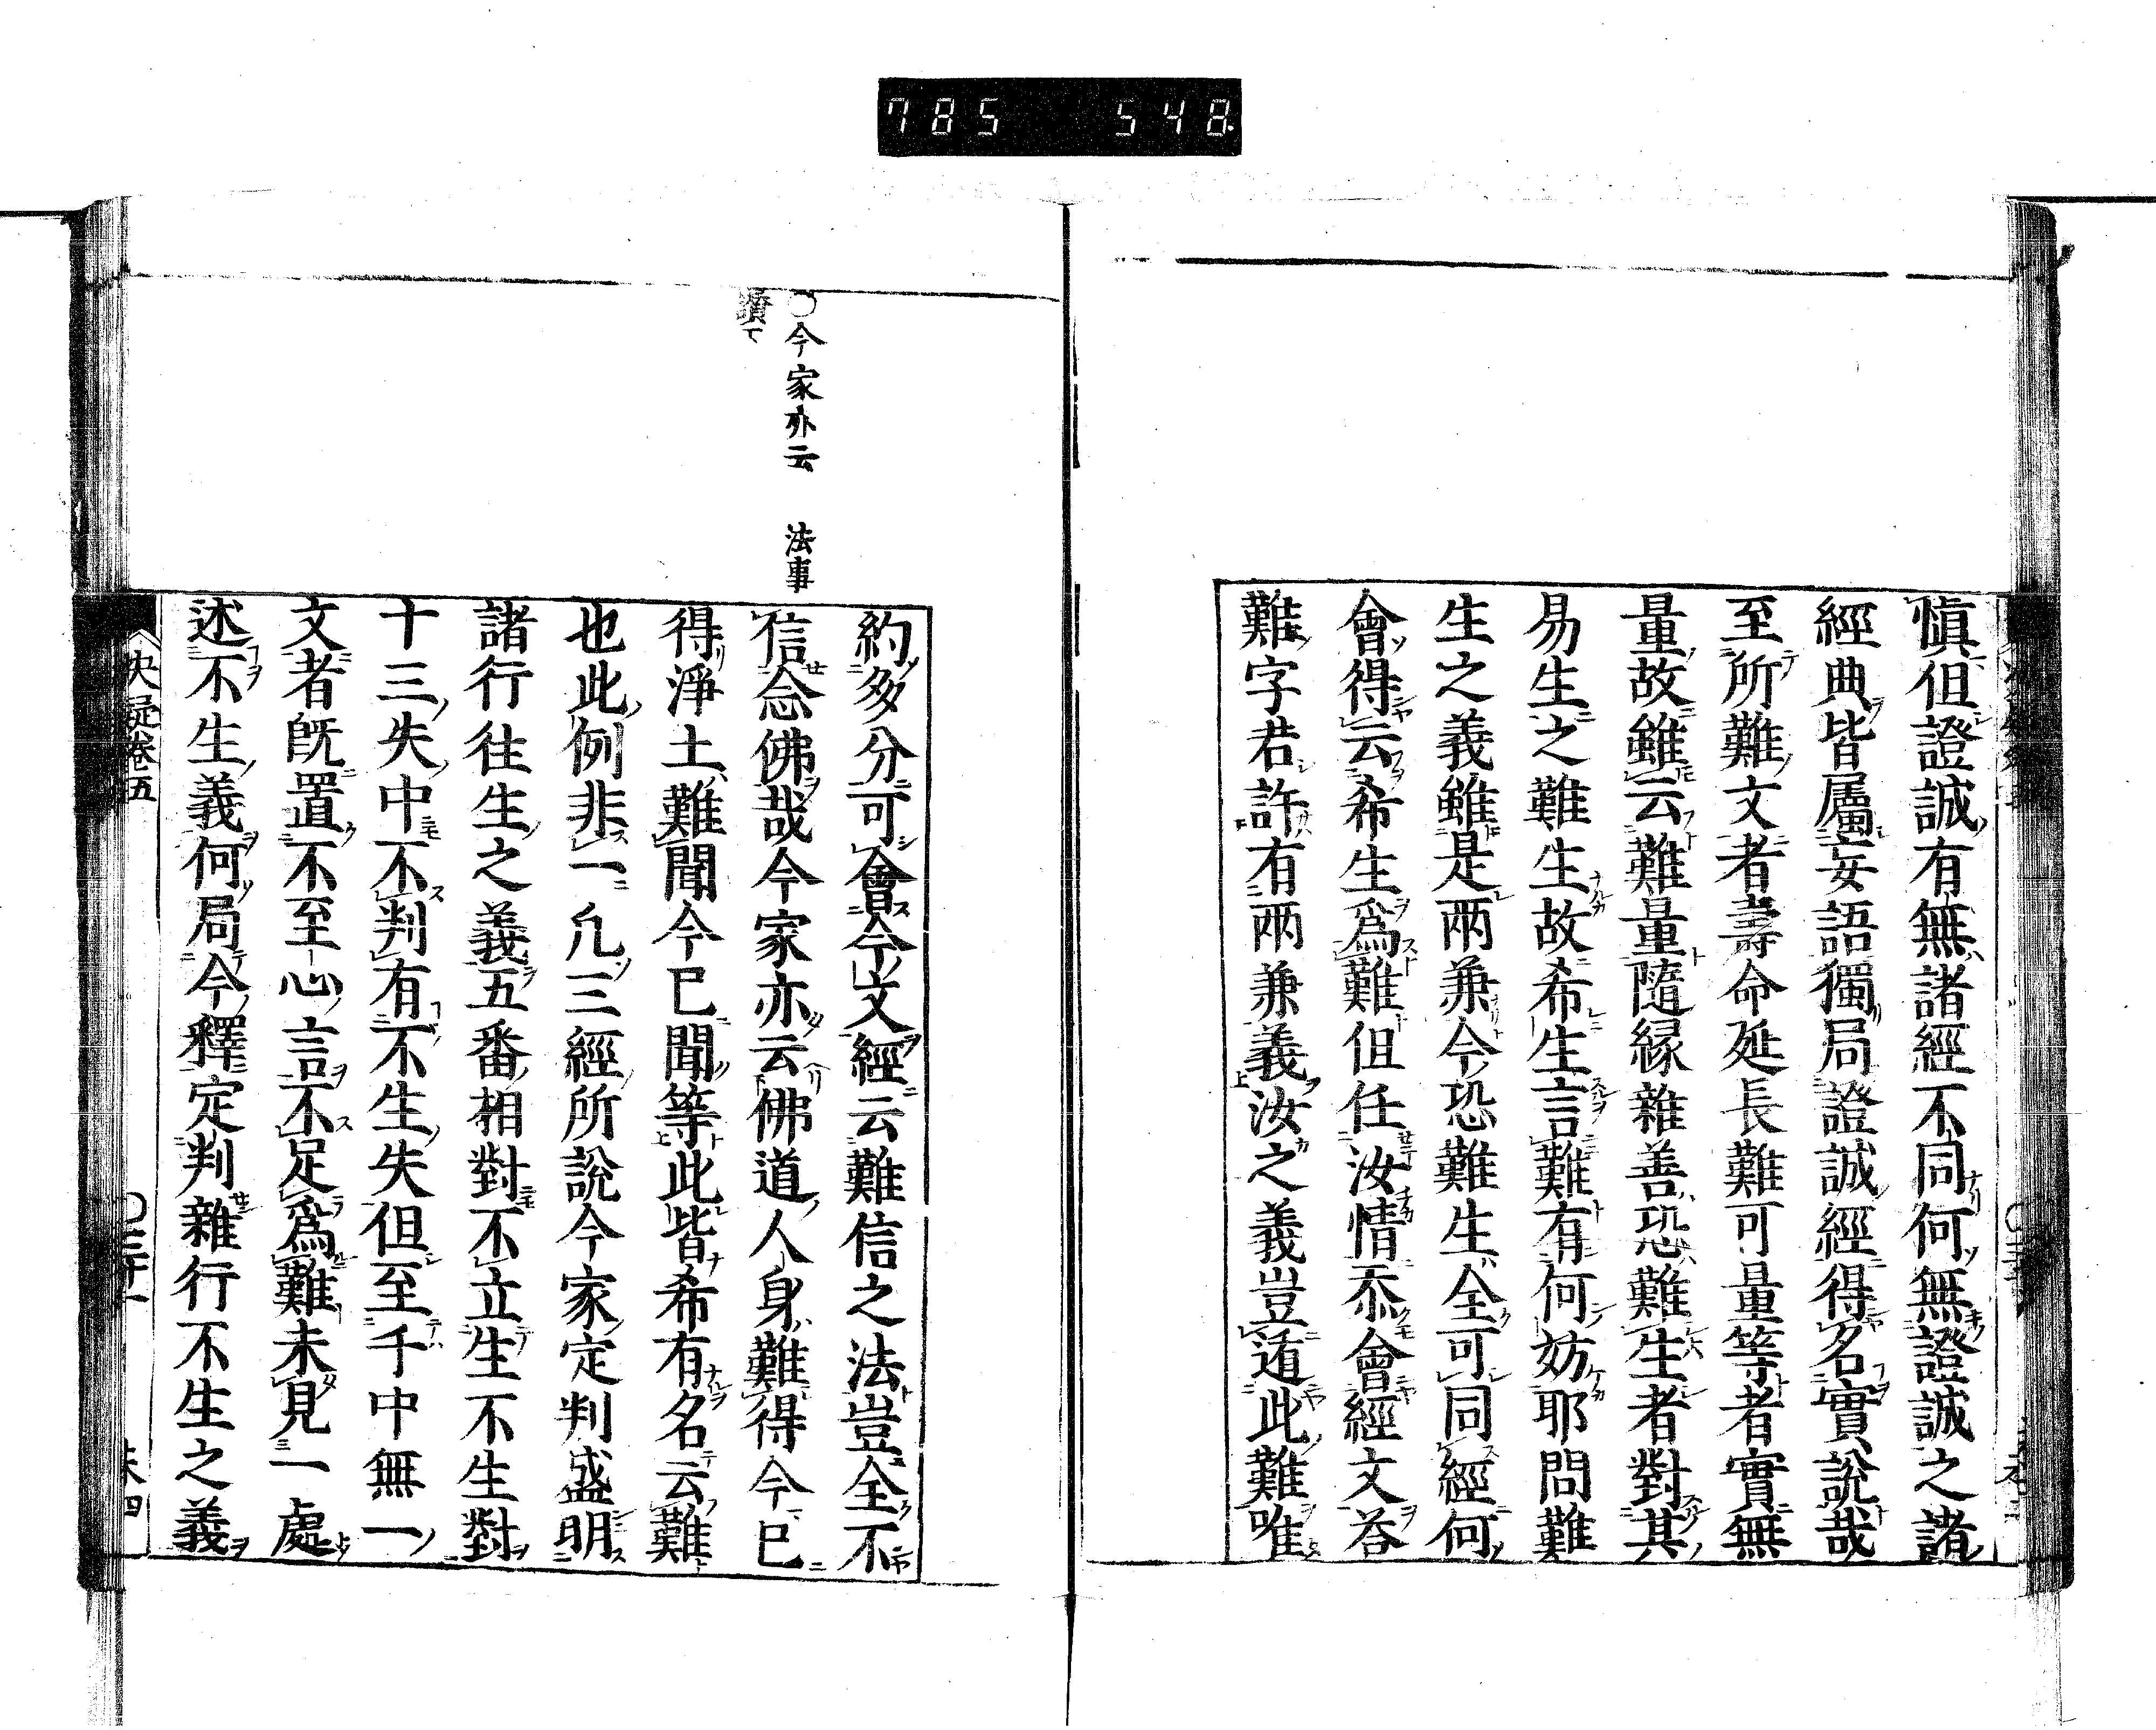 785 548
愼但證誠有無諸經不同何無證誠之諸
經典皆屬妄語獨局證誠經得名實說哉
至所難文者壽命延長難可量等者實無
量故雖云難量隨縁雜善恐難生者對其
易生之難生故希生言難有何妨耶問難
生之義雖是兩兼今恐難生全可同經何
會得云希生爲難但任汝情忝會經文荅
難字若許有兩兼義汝之義豈遁此難唯
〇今家亦云 法事
讃下
約多分可會今文經云難信之法豈全不
信念佛哉今家亦云佛道人身難得今已
得淨土難聞今已聞等此皆希有名云難
也此例非一凡三經所說今家定判盛明
諸行往生之義五番相對不立生不生對
十三失中不判有不生失但至千中無一
文者旣置不至心言不足爲難未見一處
述不生義何局今釋定判雜行不生之義
決疑卷五